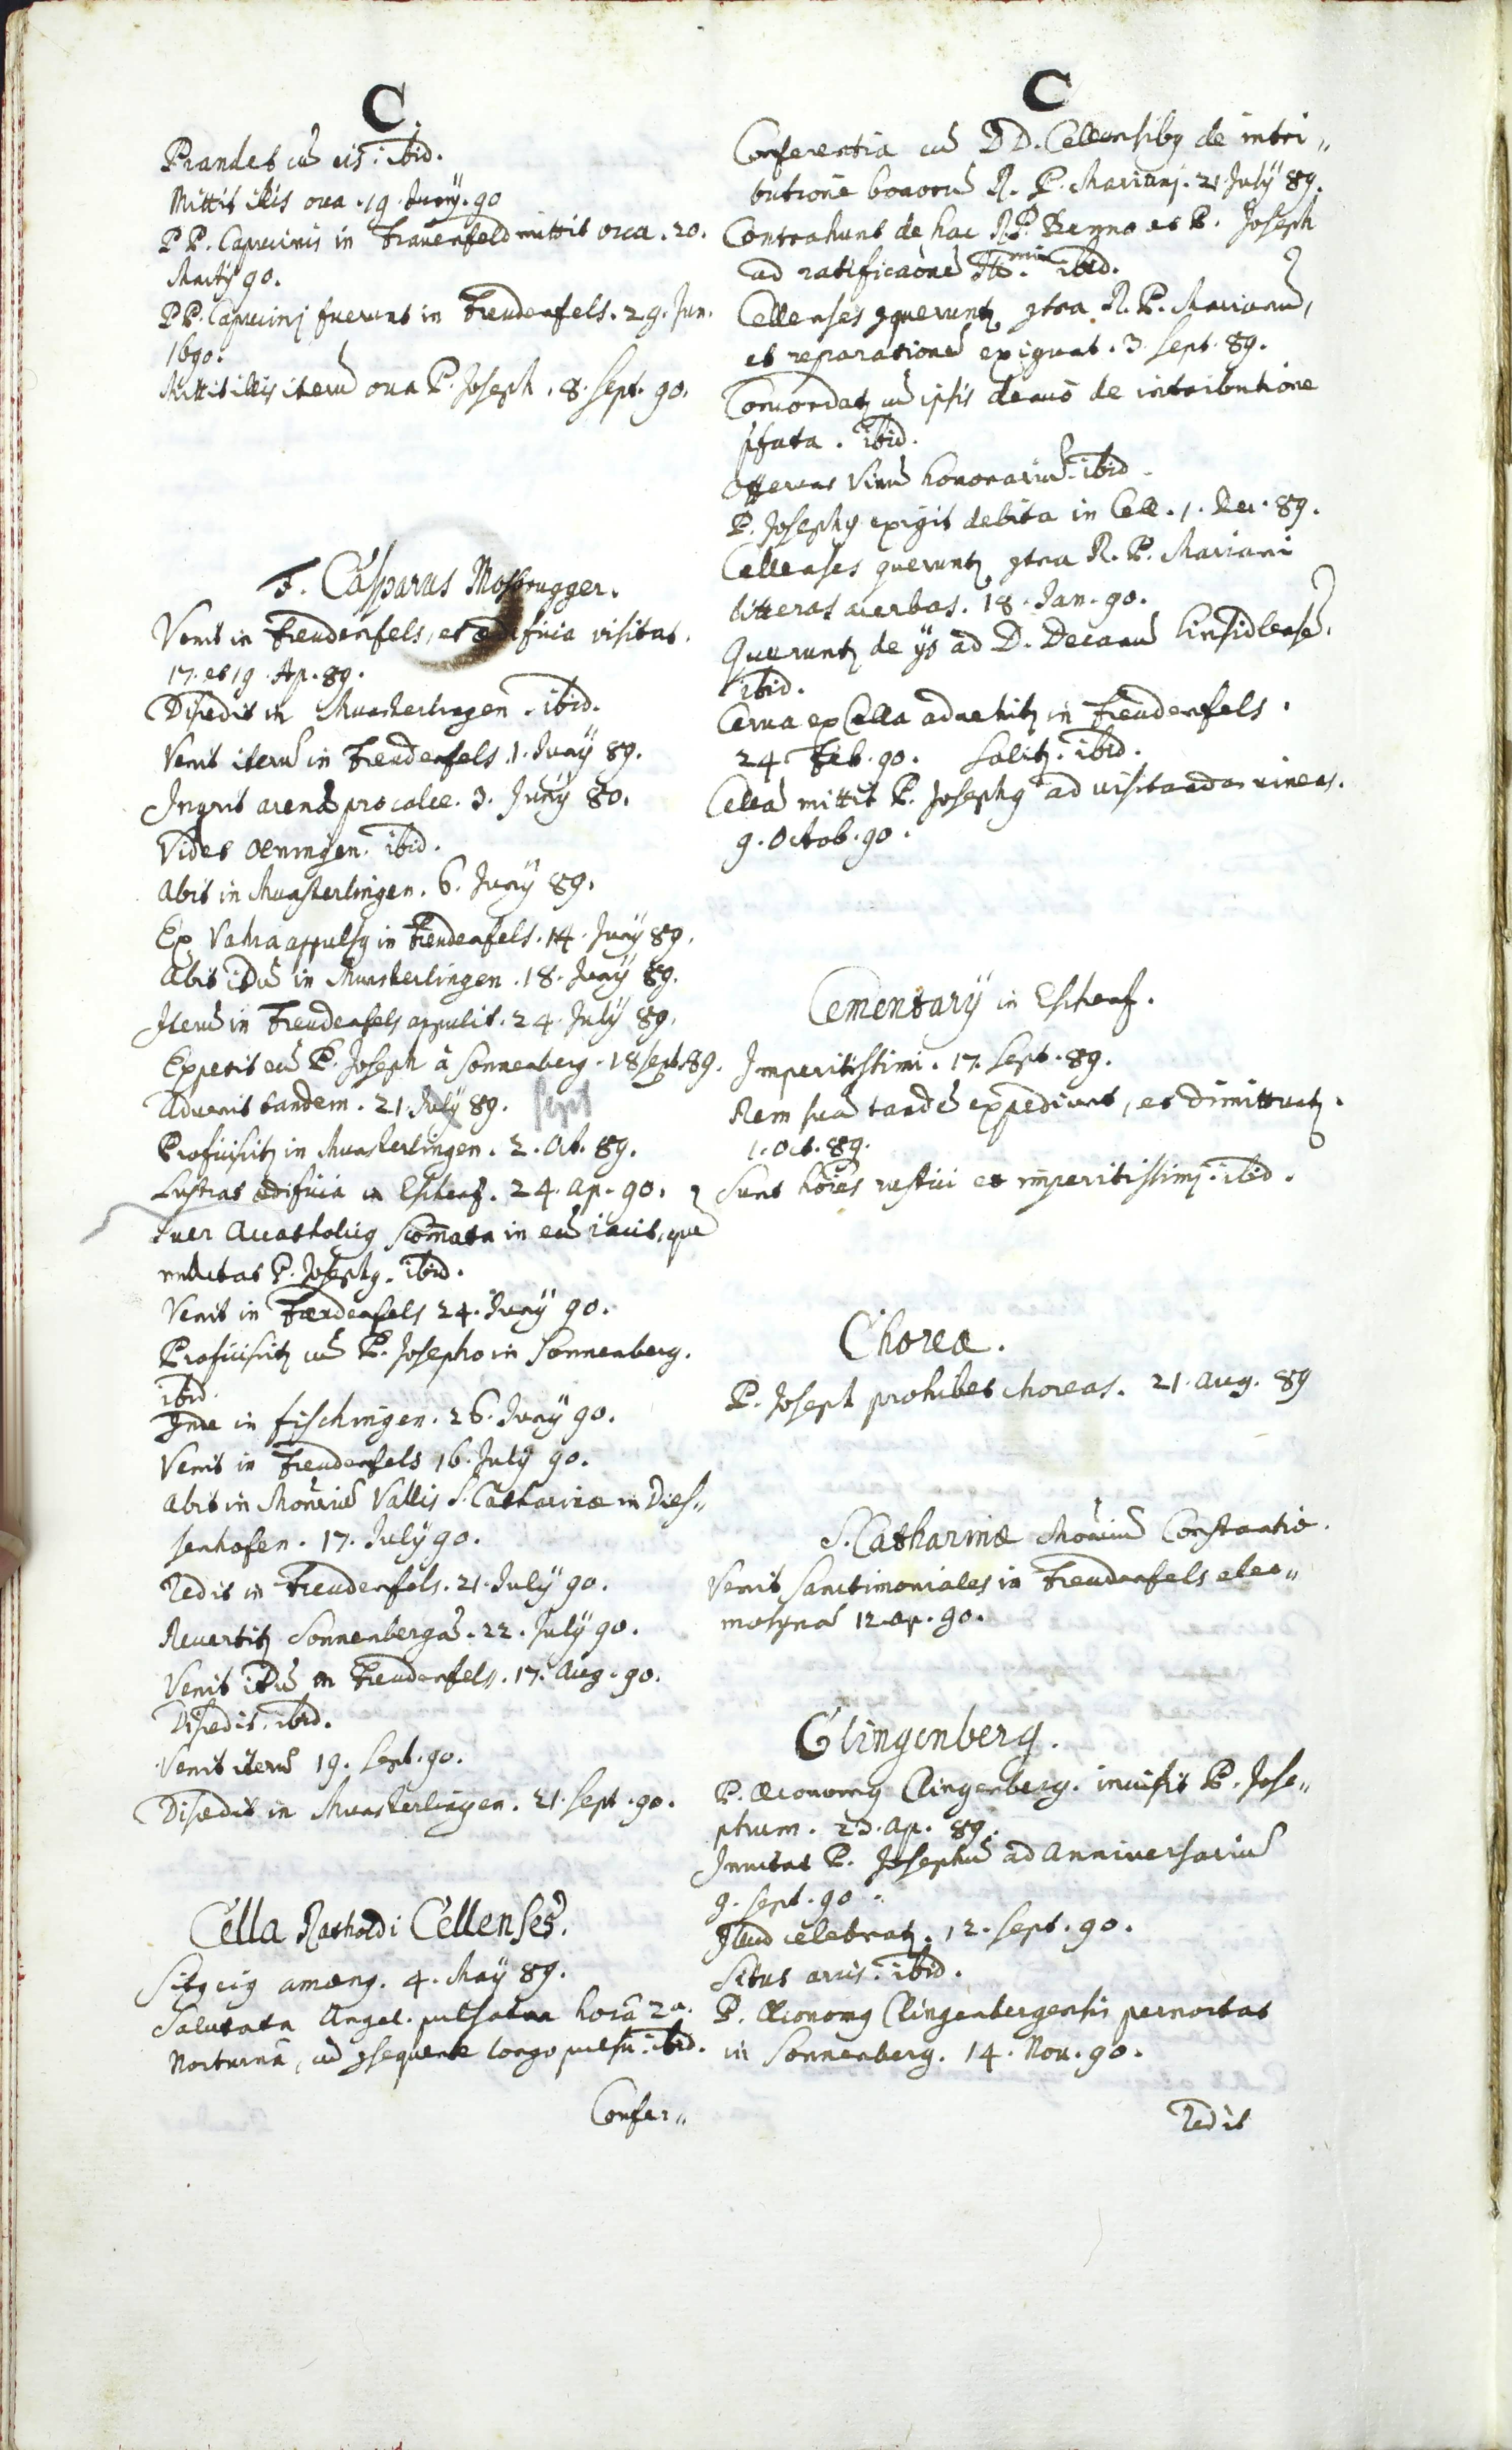 C.
Prandet cũ eis. ibid.
Mittit illis oua. 19. Junÿ. 90
PP. Capucinis in Frauenfeld mittit oua. 20.
Martÿ 90.
PP. Capucinj fuerunt in Freudenfels. 29. Jun.
1690.
Mittit illis iterũ oua P. Joseph. 8. Sept. 90.
F. Casparus Mosbrugger.
Venit in Freudenfels, et ædificia visitat.
17. et 19. Ap. 89.
Discedit in Munsterlingen. ibid.
Venit iterũ in Freudenfels. 1. Junÿ 89.
Inqrit arenã pro calce. 3. Junÿ 89.
Videt Oeningen. ibid.
Abit in Munsterlingen. 6. Junÿ 89.
Ex appulsq in Freudenfels. 14. Junÿ 89.
Abit itũ in Munsterlingen. 18. Junÿ 89.
Iterũ in Freudenfels appulit. 24. Julÿ 89.
Expetit eũ P. Joseph à Sonnenberg. 18 Sept. 89.
Aduenit tandem. 21. July 89. Sept
Proficiscitz in Munsterlingen. 2. Oct. 89.
Lustrat ædificia in Eschenz. 24. Ap. 90.
Puer Acatholicq scõmata in eũ iacit, quẽ
mulctat P. Josephq. ibid.
Venit in Freudenfels 24. Junÿ 90.
Proficiscitz cũ P. Josepho in Sonnenberg.
ibid.
Inde in Fischingen. 26. Junÿ 90.
Venit in Freudenfels 16. Julÿ 90.
Abit in Mon̄riũ Vallis S. Catharinæ in Dies„
senhofen. 17. July 90.
Redit in Freudenfels. 21. July 90.
Reuertitz Sonnenbergã. 22. July 90.
Venit itũ in Freudenfels. 17. Aug. 90.
Discedit. ibid.
Venit iterũ 19. Sept. 90.
Discedit in Munsterlingen. 21. Sept. 90.
Cella Ratholdi Cellenses.
Sitq eiq amœnq. 4. Maÿ 89.
Salutatio Angel. pulsatur horâ 2a.
Nocturnâ, cũ gsequente longo pulsu. ibid.
Confer„
C
Conferentia cũ DD. Cellensibq de intri„
butione bonorũ R. P. Marianj. 21. Julÿ 89.
Contrahunt de hac R.P. Regno et P. Joseph
ad ratificaõnẽ Rmi. ibid.
Cellenses gqueruntz gtra R. P. Marianũ,
et reparationẽ exigunt. 3. Sept. 89.
Concordatz cũ ipsis denuò de intributione
pfata. ibid.
Offerunt Vinũ honorariũ. ibid.
P. Josephq exigit debita in Cell. 1. Dec. 89.
Cellenses queruntz gtra R. P. Mariani
litteras acerbas. 18. Jan. 90.
Queruntz de ijs ad D. Decanũ Einsidlensẽ.
ibid.
Cerua ex Cella aduehitz in Freudenfels.
24. Feb. 90. Salitz. ibid.
Cellã mittit P. Josephq ad visitandas vineas.
9. Octob. 90.
Cementarÿ in Eschenz.
Imperitissimi. 17. Sept. 89.
Rem suã tandẽ expediunt, et dimittuntz.
1. Oct. 89.
Sunt hões rustici et imperitissimj. ibid.
Choreæ.
P. Joseph prohibet choreas. 21. Aug. 89
S. Catharinæ Mon̄riũ Constantiæ.
Venit Sanctimoniales in Freudenfels elee„
mosynã 12. Ap. 90.
Clingenberg.
P. Œconomq Clingenberg. inuisit P. Jose„
phum. 23. Ap. 89.
Inuitat P. Josephũ ad Anniuersariũ
9. Sept. 90.
Illud celebratz. 12. Sept. 90.
Situs arcis. ibid.
P. Œconomq Clingenbergensis pernoctat
in Sonnenberg. 14. Nou. 90.
Redit